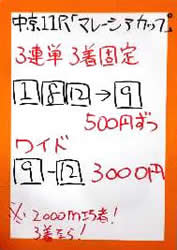 中京11R「マレーシアカップ」
3連単 3着固定
1 8 12 → 9
500円ずつ
ワイド
9 - 12 3000円
※2000m巧者!
3着なら!